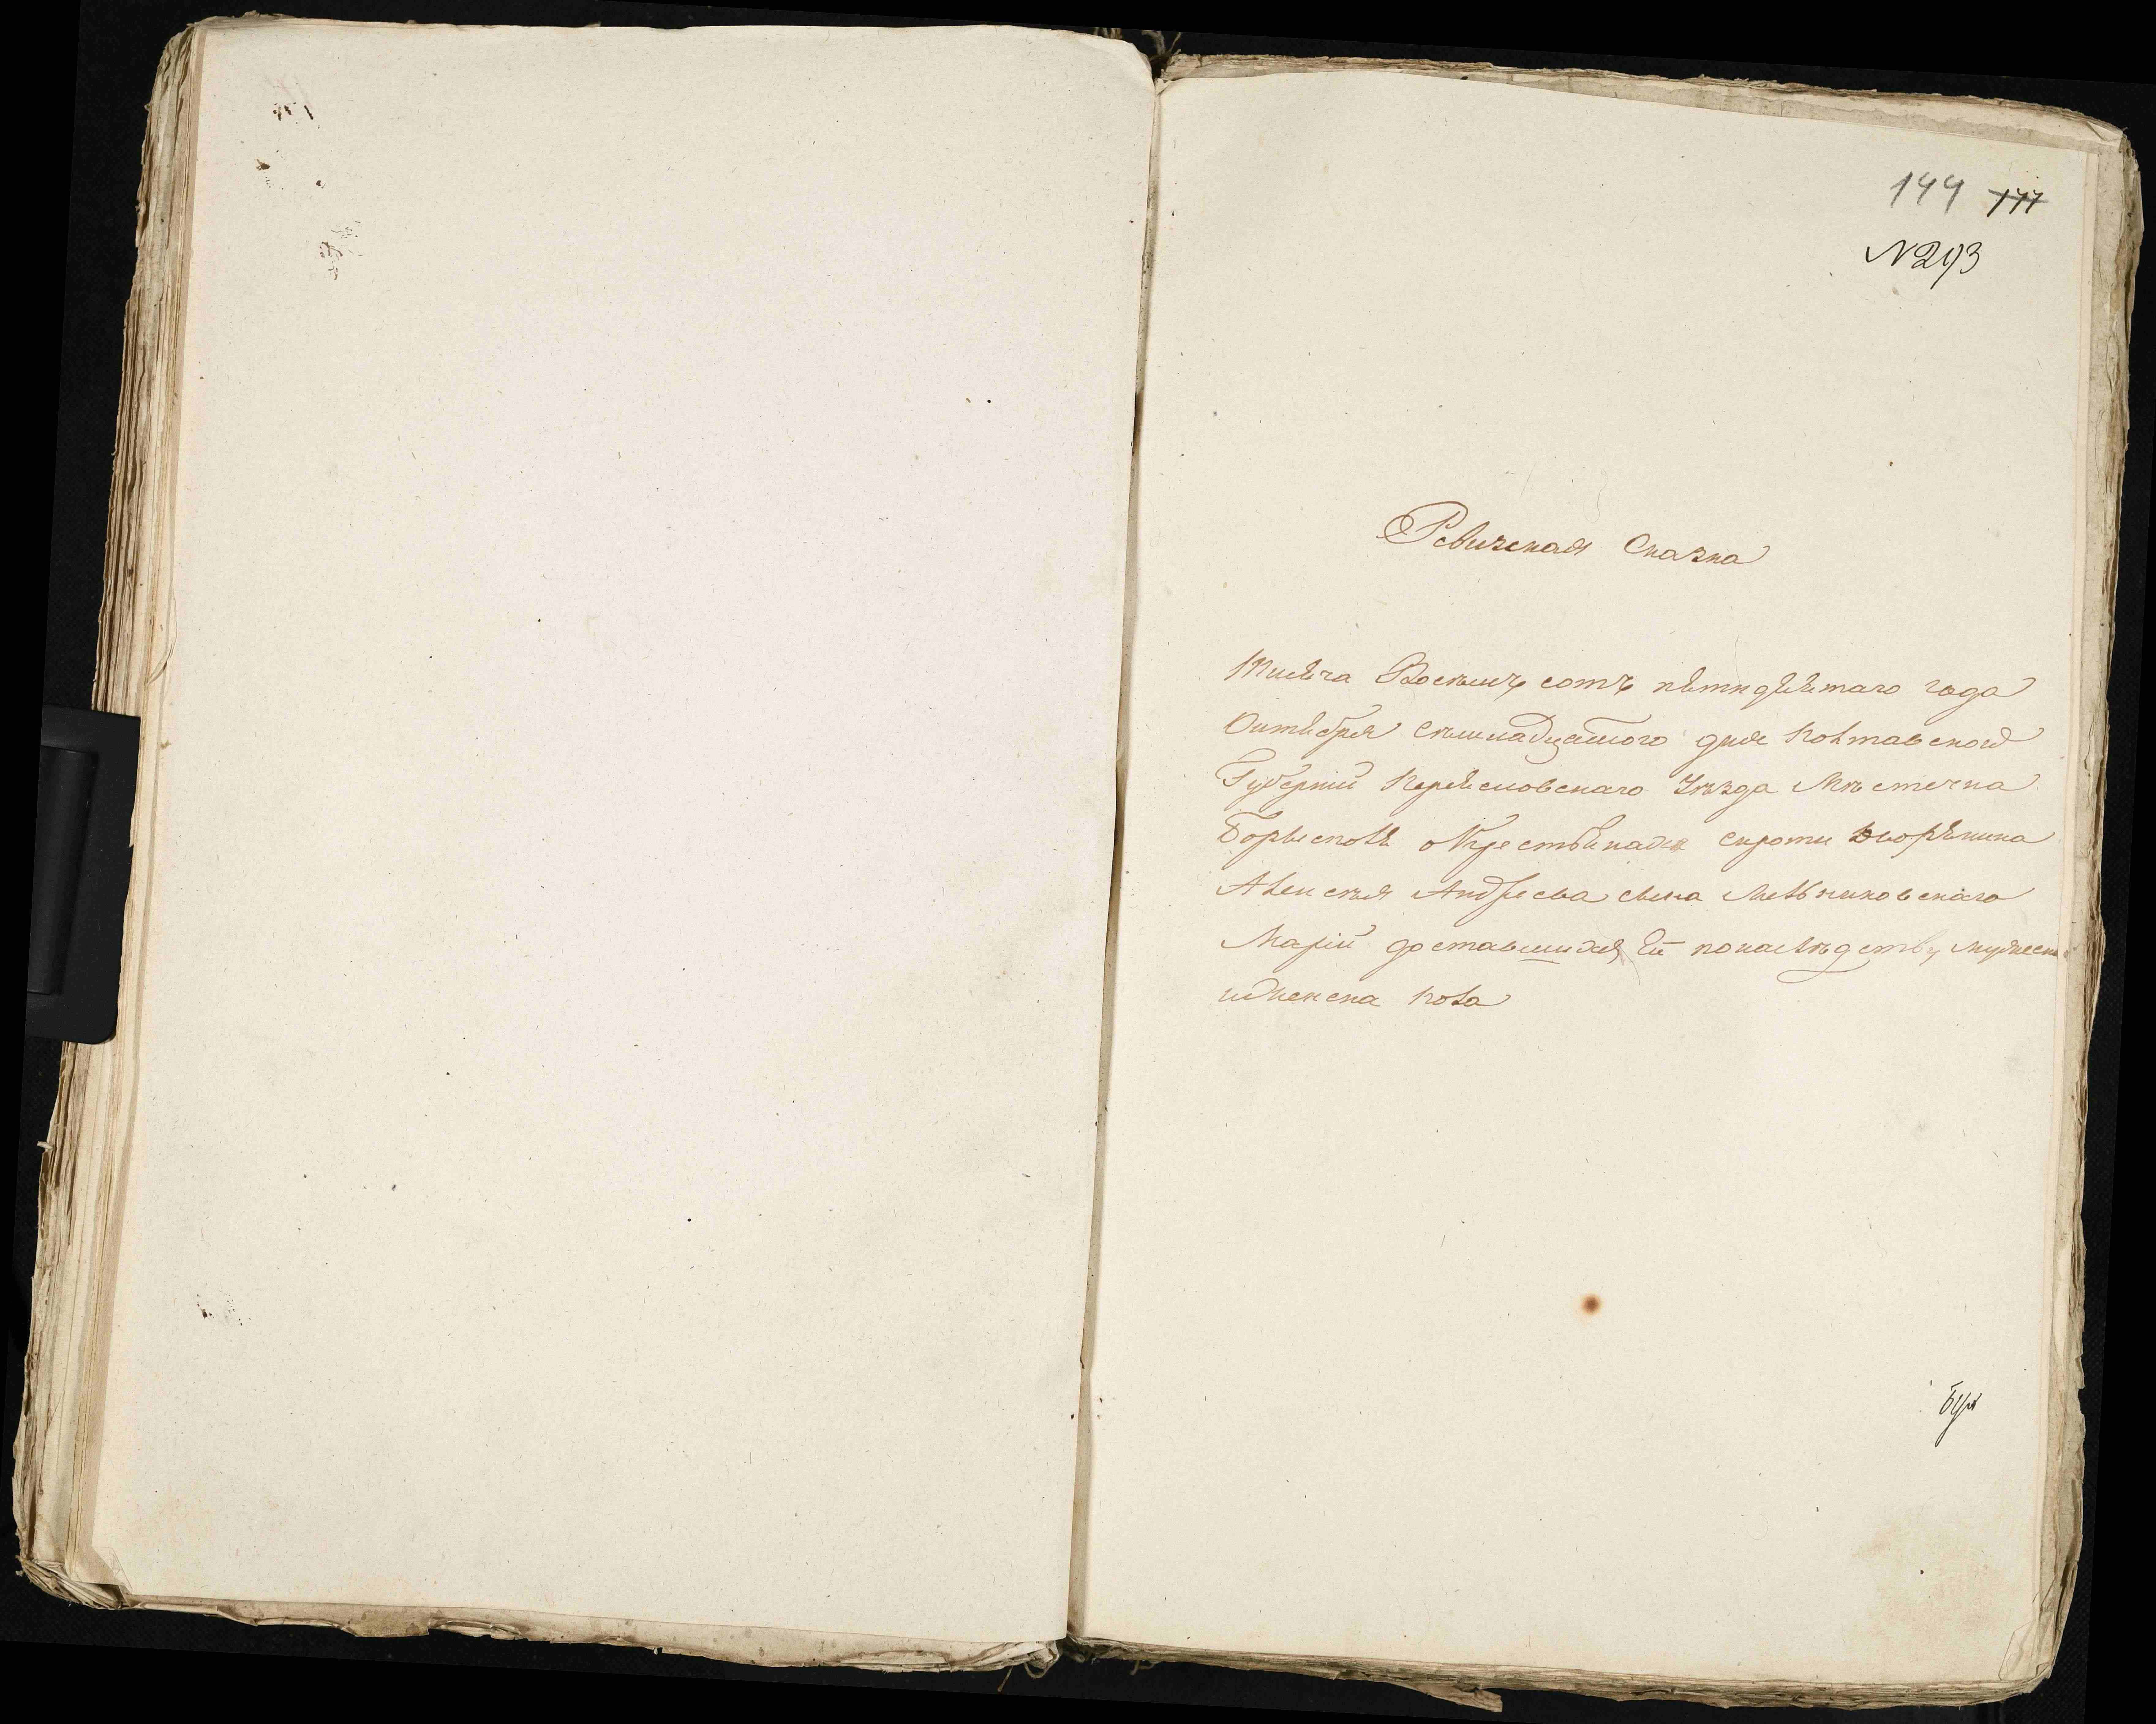 144 177
N 293
Ревизская Сказка
Тисяча Восемъ сотъ пятидесятаго года
Октября семнадцатого дня Полтавской
Губерніи Переясловскаго Уезда Мѣстечка
Борысполя о Крестьянахъ сироти дворянина
Алексея Андреева сына Мельниковскаго
Маріи доставшихся Ей понаслѣдству мужеск
иженска пола